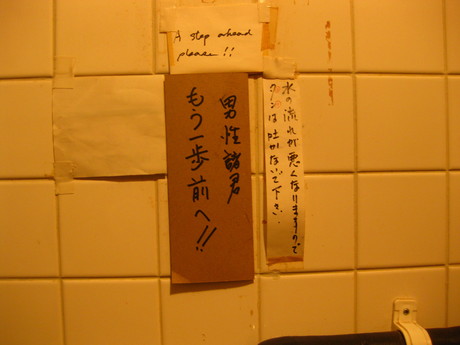 A step ahead
please!!
男性諸君
もう一歩前へ!!
水の流れが悪くなりますので
タンは吐かないで下さい.